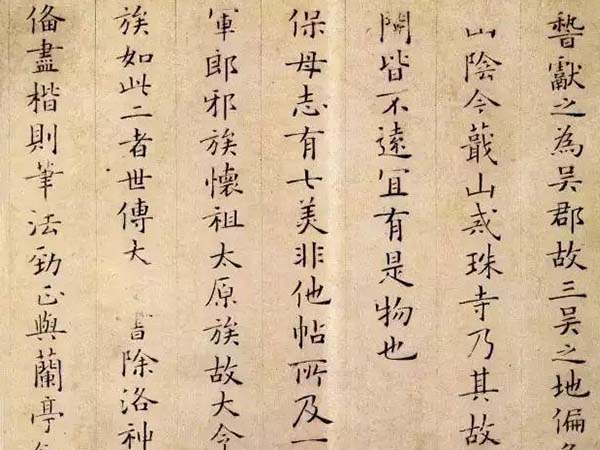 誓獻之為吳郡故三吳之地偏
山陰今蕺山戒珠寺乃其故
閒皆不遠宜有是物也
保母志有七美非他帖所及一
軍郎邪族懷祖太原族故大令
族如此二者世傳大 除洛神
俻盡楷則筆法勁正與蘭亭